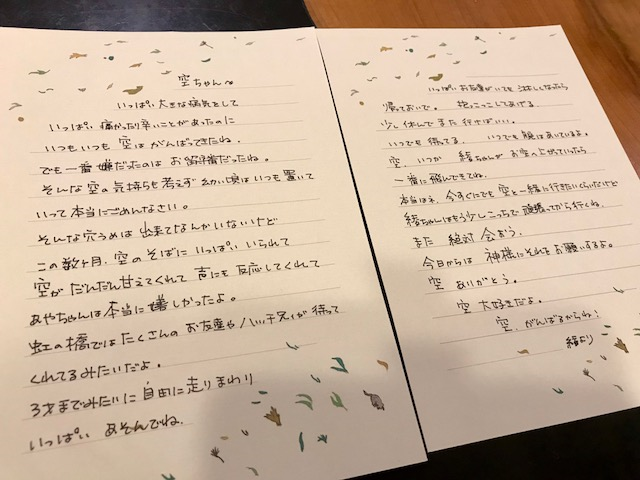 空ちゃんへ
いっぱい大きな病気をして
いっぱい 痛かったり辛いことがあったのに
いつもいつも 空はがんばってきたね。
でも一番嫌だったのは お留守番だったね。
そんな空の気持ちも考えず 幼い頃はいつも置いて
いって本当にごめんなさい。
そんな穴うめは 出来てなんかいないけど
この数ヶ月、空のそばに いっぱい いられて
空が だんだん甘えてくれて 声にも 反応してくれて
あやちゃんは本当に嬉しかったよ。
虹の橋では たくさんの お友達や が待って
くれてるみたいだよ。
3才までみたいに 自由に走りまわり
いっぱい あそんでね。
いっぱいお友達がいても 淋しくなったら
帰っておいで。 抱っこしてあげる
少し休んで また 行けばいい。
いつでも待ってる いつでも 腕はあいているよ。
空、いつか 綾ちゃんが お空へ上がっていったら
一番に飛んできてね。
本当はネ、今すぐにでも 空と一緒に行きたいくらいだけど
綾ちゃんはもう少しこっちで 頑張ってから行くね。
また 絶対 会おう。
今日からは 神様にそれをお願いするよ。
空 ありがとう。
空 大好きだよ。
空、がんばるからね!
綾より